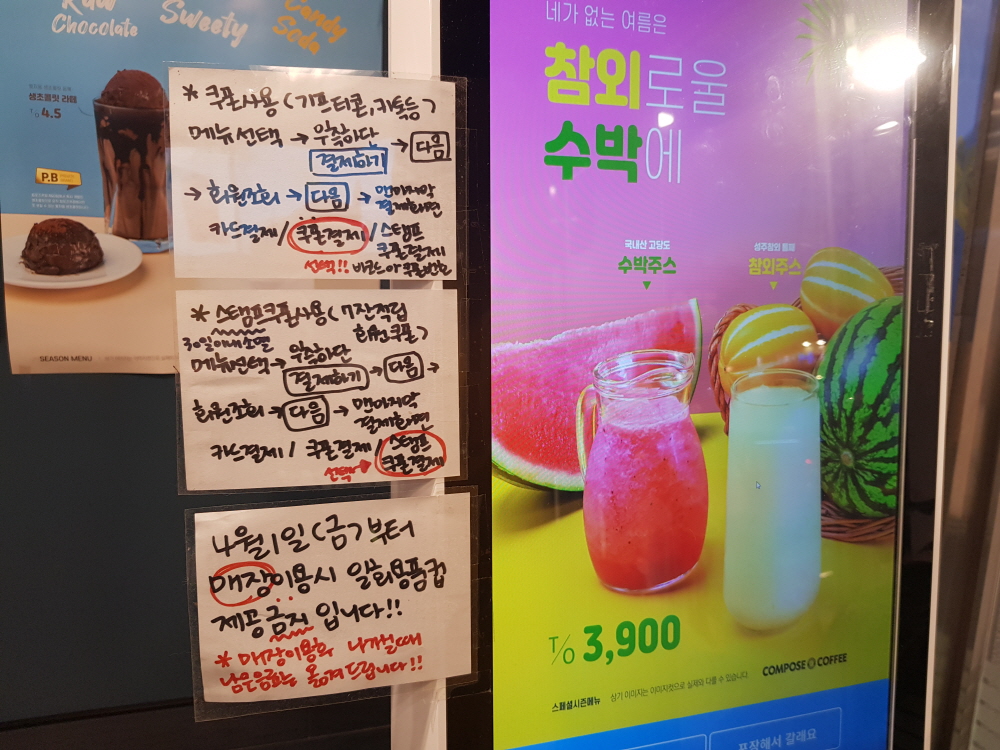 Raw
Chocolate
Sweety
Candy
Soda
생초콜릿 라떼
T/O 4.5
P.B
SEASON MENU
* 쿠폰사용 (기프티콘, 카톡등)
메뉴선택 → 우측하단
결제하기 → 다음
→ 회원조회 → 다음 → 맨마지막
결제화면
카드결제 / 쿠폰결제 / 스탬프
쿠폰결제
선택!! 바코드 or 쿠폰번호
* 스탬프쿠폰사용 (7잔적립
회원쿠폰)
30일이내 소멸
메뉴선택 → 우측하단
결제하기 → 다음 →
회원조회 → 다음 → 맨마지막
결제화면
카드결제 / 쿠폰결제 / 스탬프
쿠폰결제
선택
4월 1일 (금) 부터
매장이용시 일회용품컵
제공 금지 입니다!!
* 매장이용후 나가실때
남은음료는 옮겨 드립니다!!
네가 없는 여름은
참외로울
수박에
국내산 고당도
수박주스
성주참외 통째
참외주스
T/O 3,900
스페셜시즌메뉴
상기 이미지는 이미지컷으로 실제와 다를 수 있습니다.
COMPOSE COFFEE
포장해서 갈래요